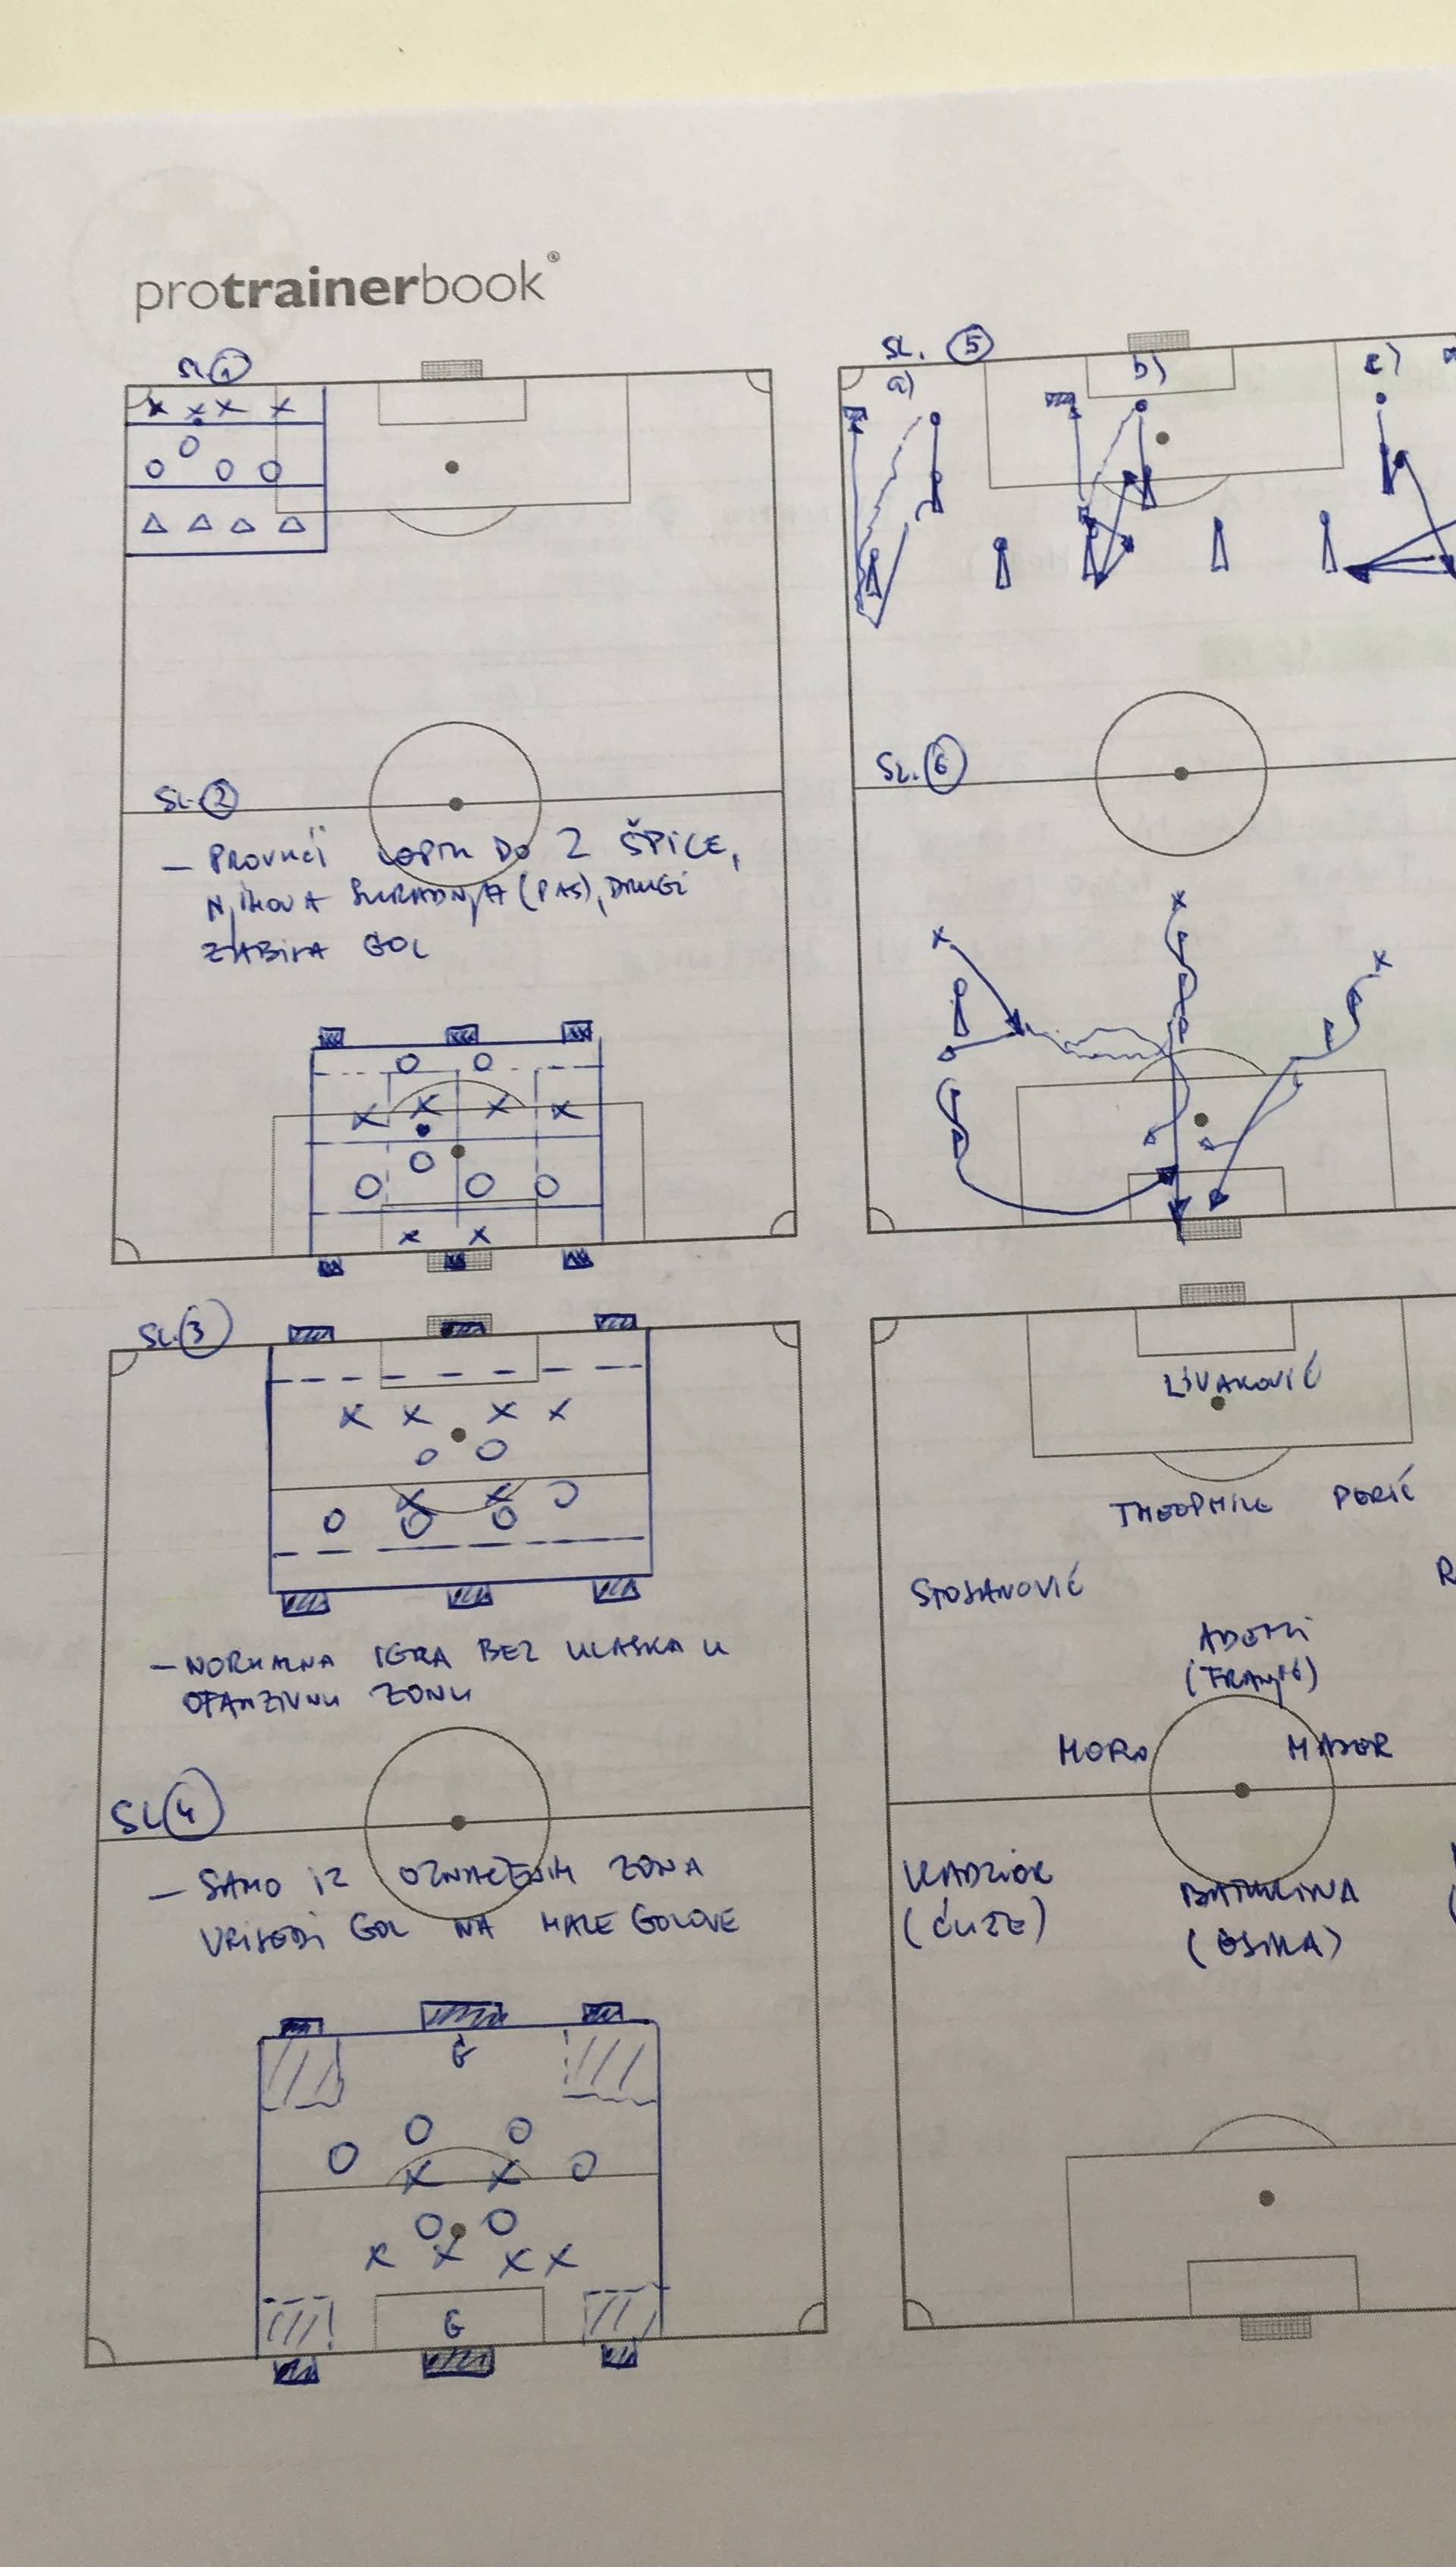 protrainerbook®
SL. 1
SL. 2
– PROVUĆI LOPTU DO 2 ŠPICE,
NJIHOVA SURADNJA (PAS), DRUGI
ZABIVA GOL
SL. 3
– NORMALNA IGRA BEZ ULASKA U
OFANZIVNU ZONU
SL 4
– SAMO IZ OZNAČENIH ZONA
VRIJEDI GOL NA MALE GOLOVE
G
G
SL. 5
a) b) c)
SL. 6
LIVAKOVIĆ
THEOPHILE PERIĆ
STOJANOVIĆ R
ADEMI
(FRANJIĆ)
MORO MAJER
KADZIOR BATURINA
(ĆUŽE) (GJIRA)